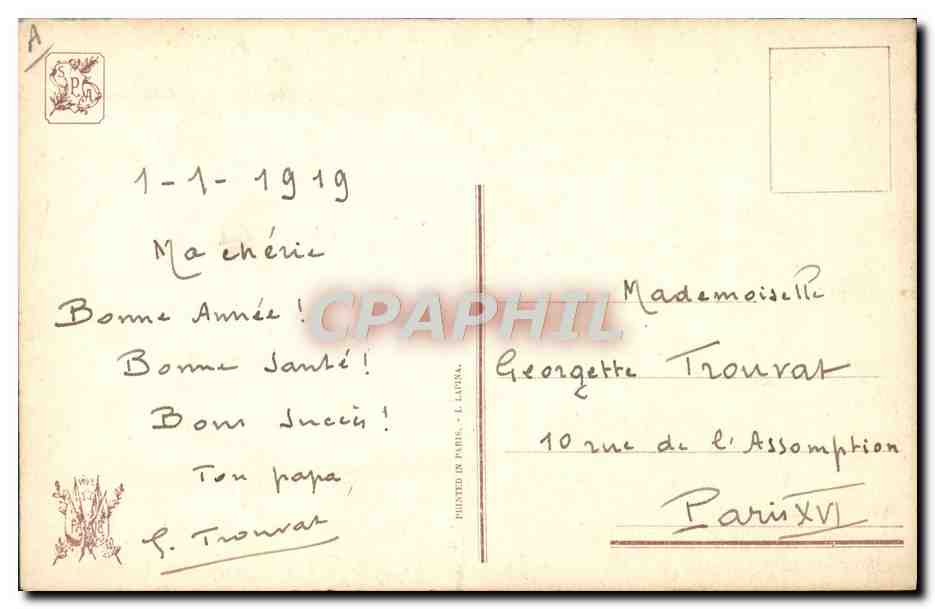 A
S P A
1-1-1919
Ma chérie
Bonne Année !
Bonne Santé !
Bons Succès !
Ton papa,
G. Trouvat
PRINTED IN PARIS. - I. LAPINA.
CPAPHIL
Mademoiselle
Georgette Trouvat
10 rue de l'Assomption
Paris XVI